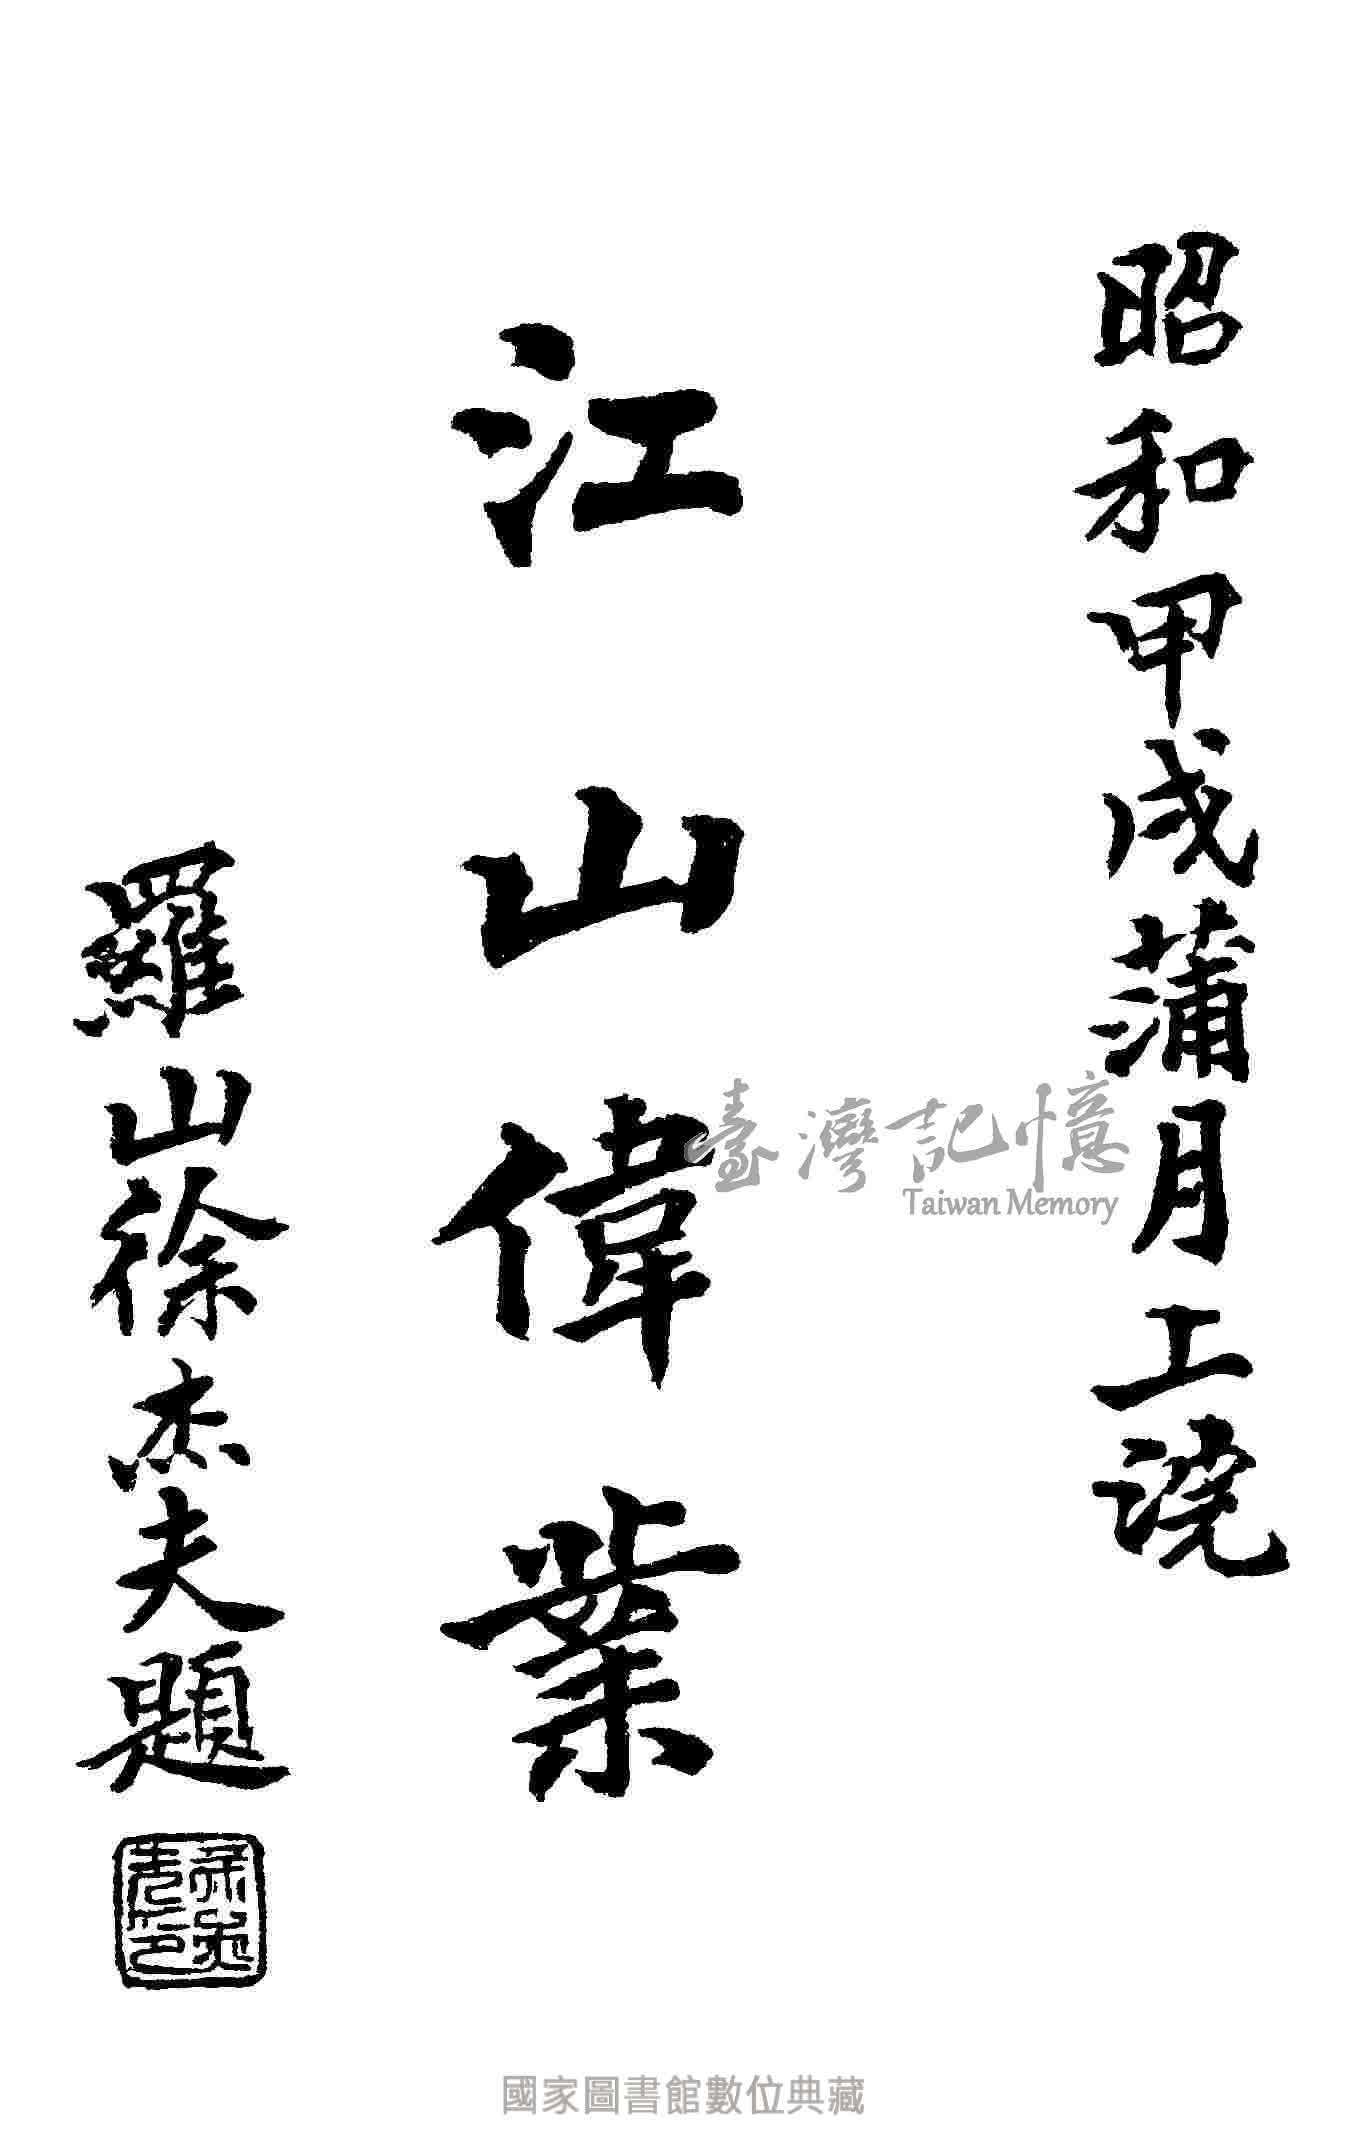 昭和甲戌蒲月上浣
江山偉業
羅山徐杰夫題
臺灣記憶
Taiwan Memory
國家圖書館數位典藏